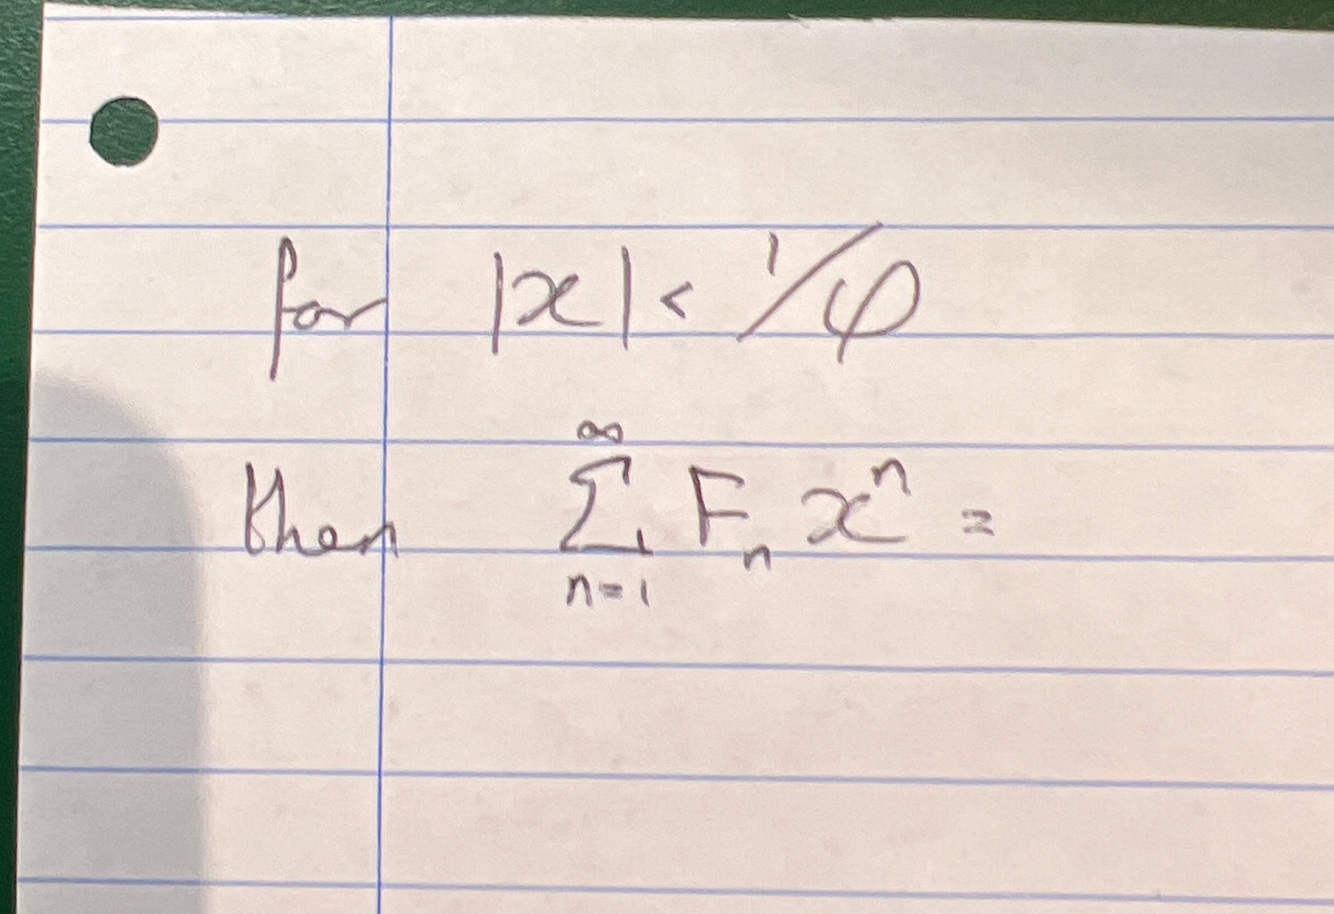 for |x| < 1/φ
then ∞∑n=1 Fₙ xⁿ =